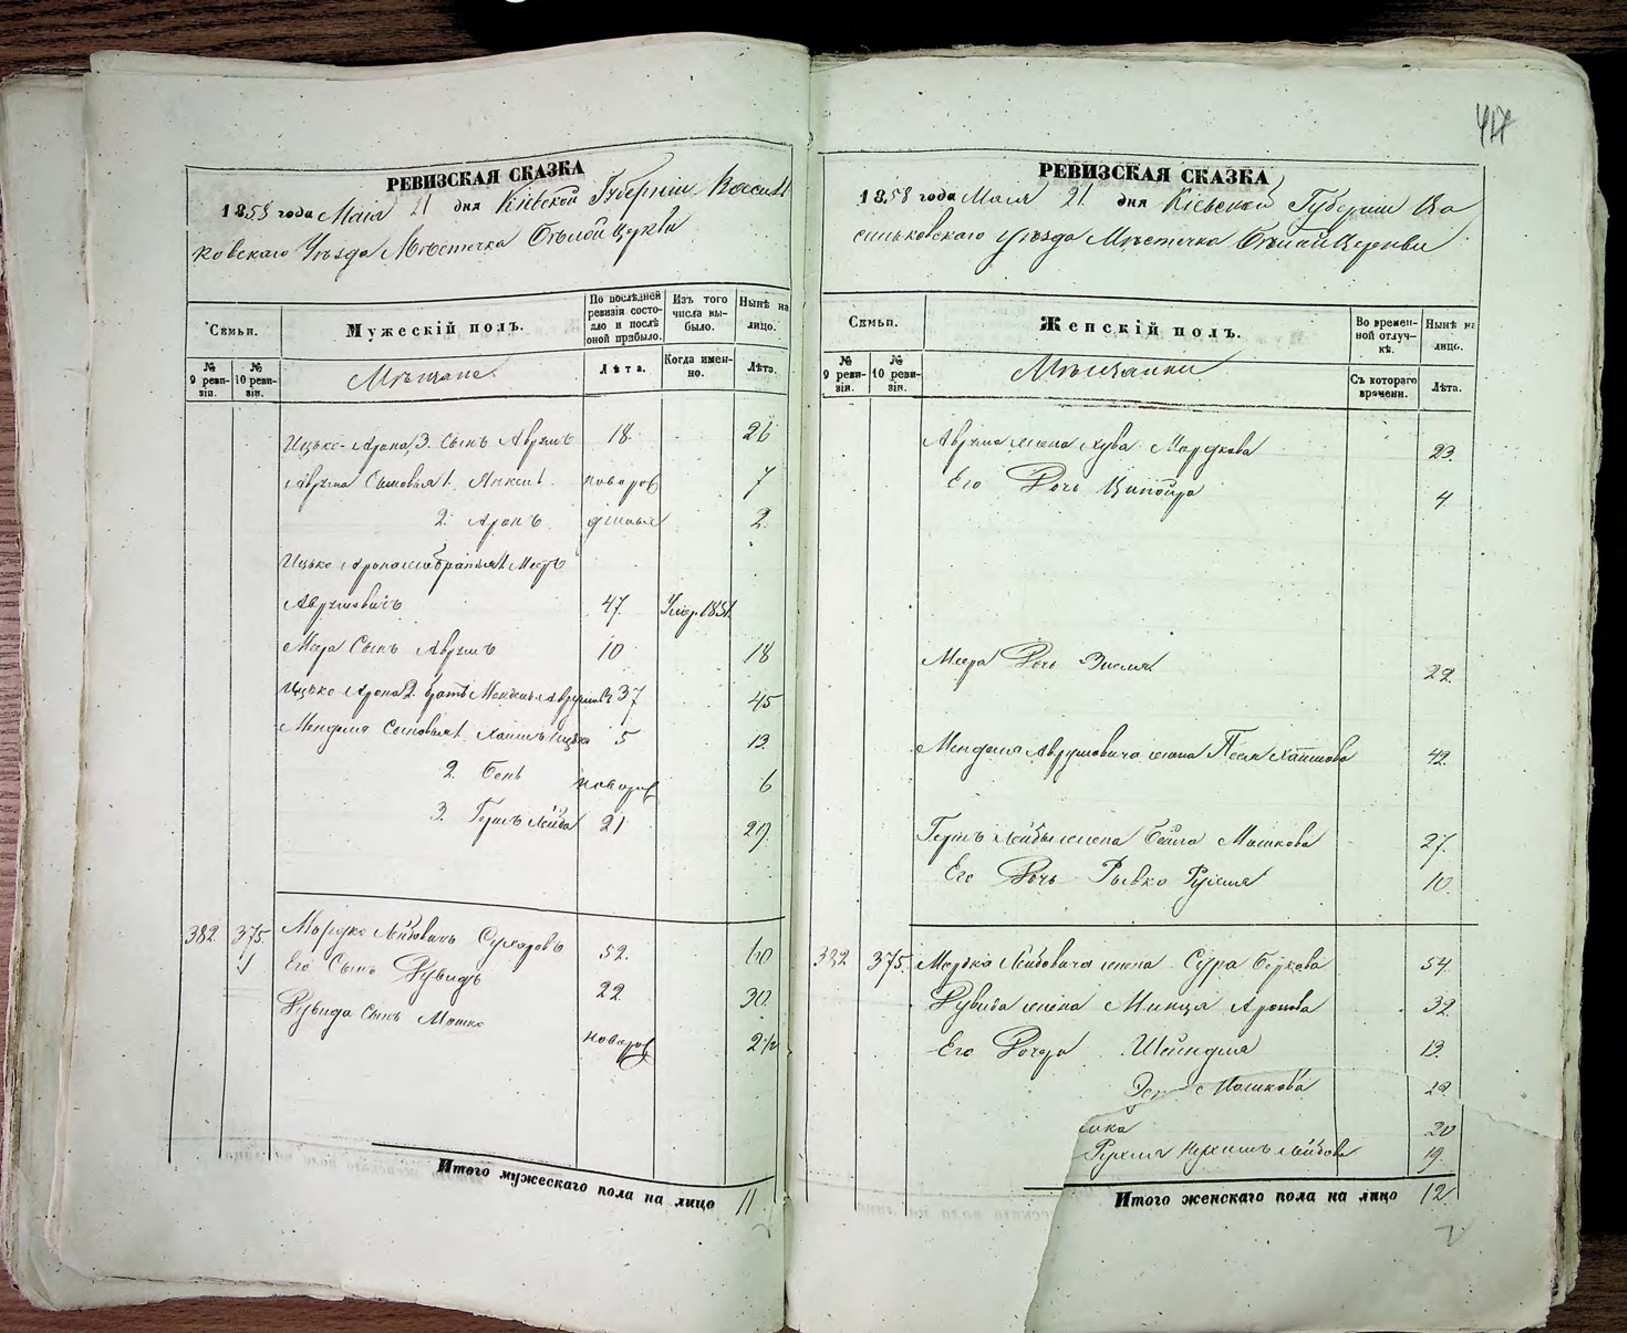 417
РЕВИЗСКАЯ СКАЗКА
1858 года Маія 21 дня Кіевской Губерніи Василь
ковскаго Уѣзда Мѣстечка Бѣлой Церкви
Семьи.
Мужескій полъ.
По послѣдней ревизіи состояло и послѣ оной прибыло.
Изъ того числа выбыло.
Нынѣ на лицо.
№ 9 ревизіи.
№ 10 ревизіи.
Мѣщане
Лѣта.
Когда именно.
Лѣта.
Ицько-Арона 3. Сынъ Аврумъ 18. 26
Аврума Сыновья 1. Янкель новорож 7
2. Аронъ денные 2.
Ицько Арона братья 1 Меер
Аврумовичъ 47. Умер. 1851.
Меера Сынъ Аврумъ 10 18
Ицько Арона 2. братъ Мендель Аврумов 37 45
Менделя Сыновья 1. Хаимъ Ицько 5 13.
2. Бень новорож 6
3. Гершъ Лейба 21 29
382. 375. Мордко Лейбовичъ Сухаровъ 52. 60
Его Сынъ Дувидъ 22. 30.
Дувида Сынъ Мошко новорож 2 1/2
Итого мужескаго пола на лицо 11
РЕВИЗСКАЯ СКАЗКА
1858 года Маія 21 дня Кіевской Губерніи Ва
сильковскаго Уѣзда Мѣстечка Бѣлой Церкви
Семьи.
Женскій полъ.
Во временной отлучкѣ.
Нынѣ на лицо.
№ 9 ревизіи.
№ 10 ревизіи.
Мѣщанки
Съ котораго времени.
Лѣта.
Аврума жена Хува Мордкова 23.
Его Дочь Ципойра 4.
Меера Дочь Зисля 22.
Менделя Аврумовича жена Песя Хаимова 42.
Гершъ Лейбы жена Бейла Мошкова 27.
Его Дочь Рывко Рухля 10.
382 375. Мордка Лейбовича жена Сура Беркова 54.
Дувида жена Минця Аронова 32.
Его Дочери Шейндля 13.
Мошкова
20
Рухля Нухимъ Лейбова 19.
Итого женскаго пола на лицо 12